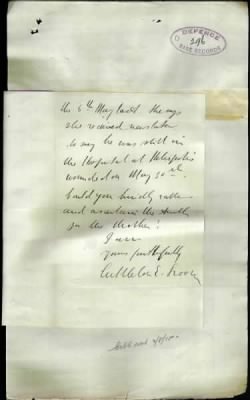 DEFENCE
196
BASE RECORDS
the 6th May last. She says
she received news later
to say he was still in
the Hospital at
wounded on May 30th.
Could you kindly cable
and ascertain the truth
for the Mother?
I am
yours faithfully